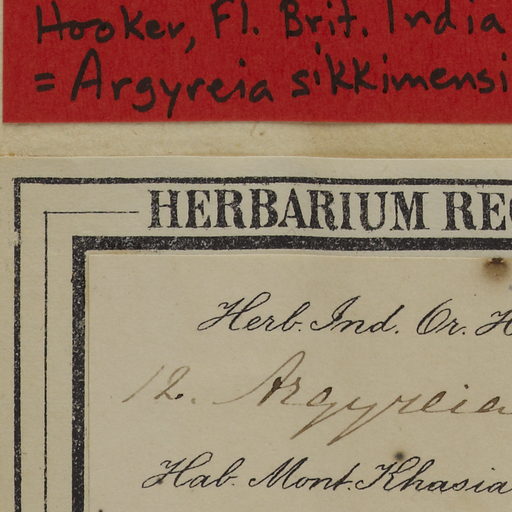 Hooker, Fl. Brit. India
= Argyreia sikkimensi
HERBARIUM REG
Herb. Ind. Or. H
12. Argyreia
Hab. Mont. Khasia